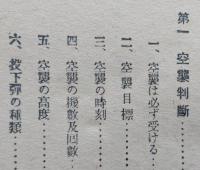 第一 空襲判断……
一、空襲は必ず受ける……
二、空襲目標……
三、空襲の時刻……
四、空襲の機数及回数……
五、空襲の高度……
六、投下弾の種類……